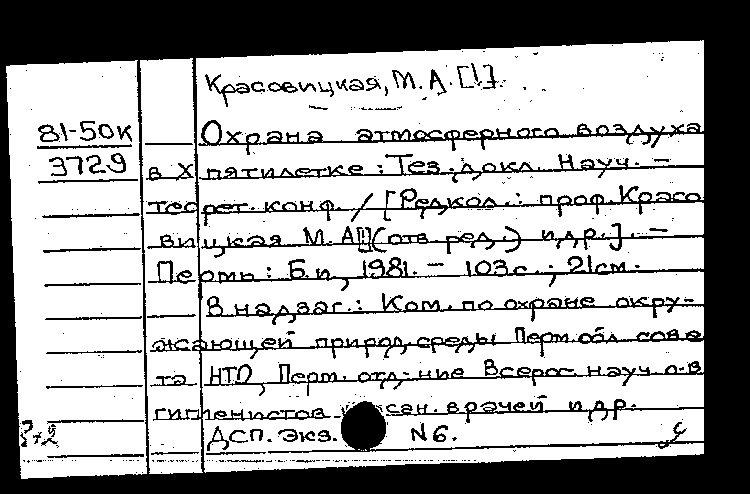 Красовицкая, М. А. [1]
81-50К
3729
Охрана атмосферного воздуха
в X пятилетке : Тез. докл. Науч. -
теорет. конф. / [Редкол.: проф. Красо
вицкая М. А[1] (отв. ред.) и др.]. -
Пермь : Б. и, 1981. - 103 с. ; 21 см.
В надзаг.: Ком. по охране окру-
жающей природ. среды Перм. обл. сове
та НТО, Перм. отд-ние Всерос. науч. о-в
гигиенистов сан. врачей и др.
ДСП. Экз. N 6.